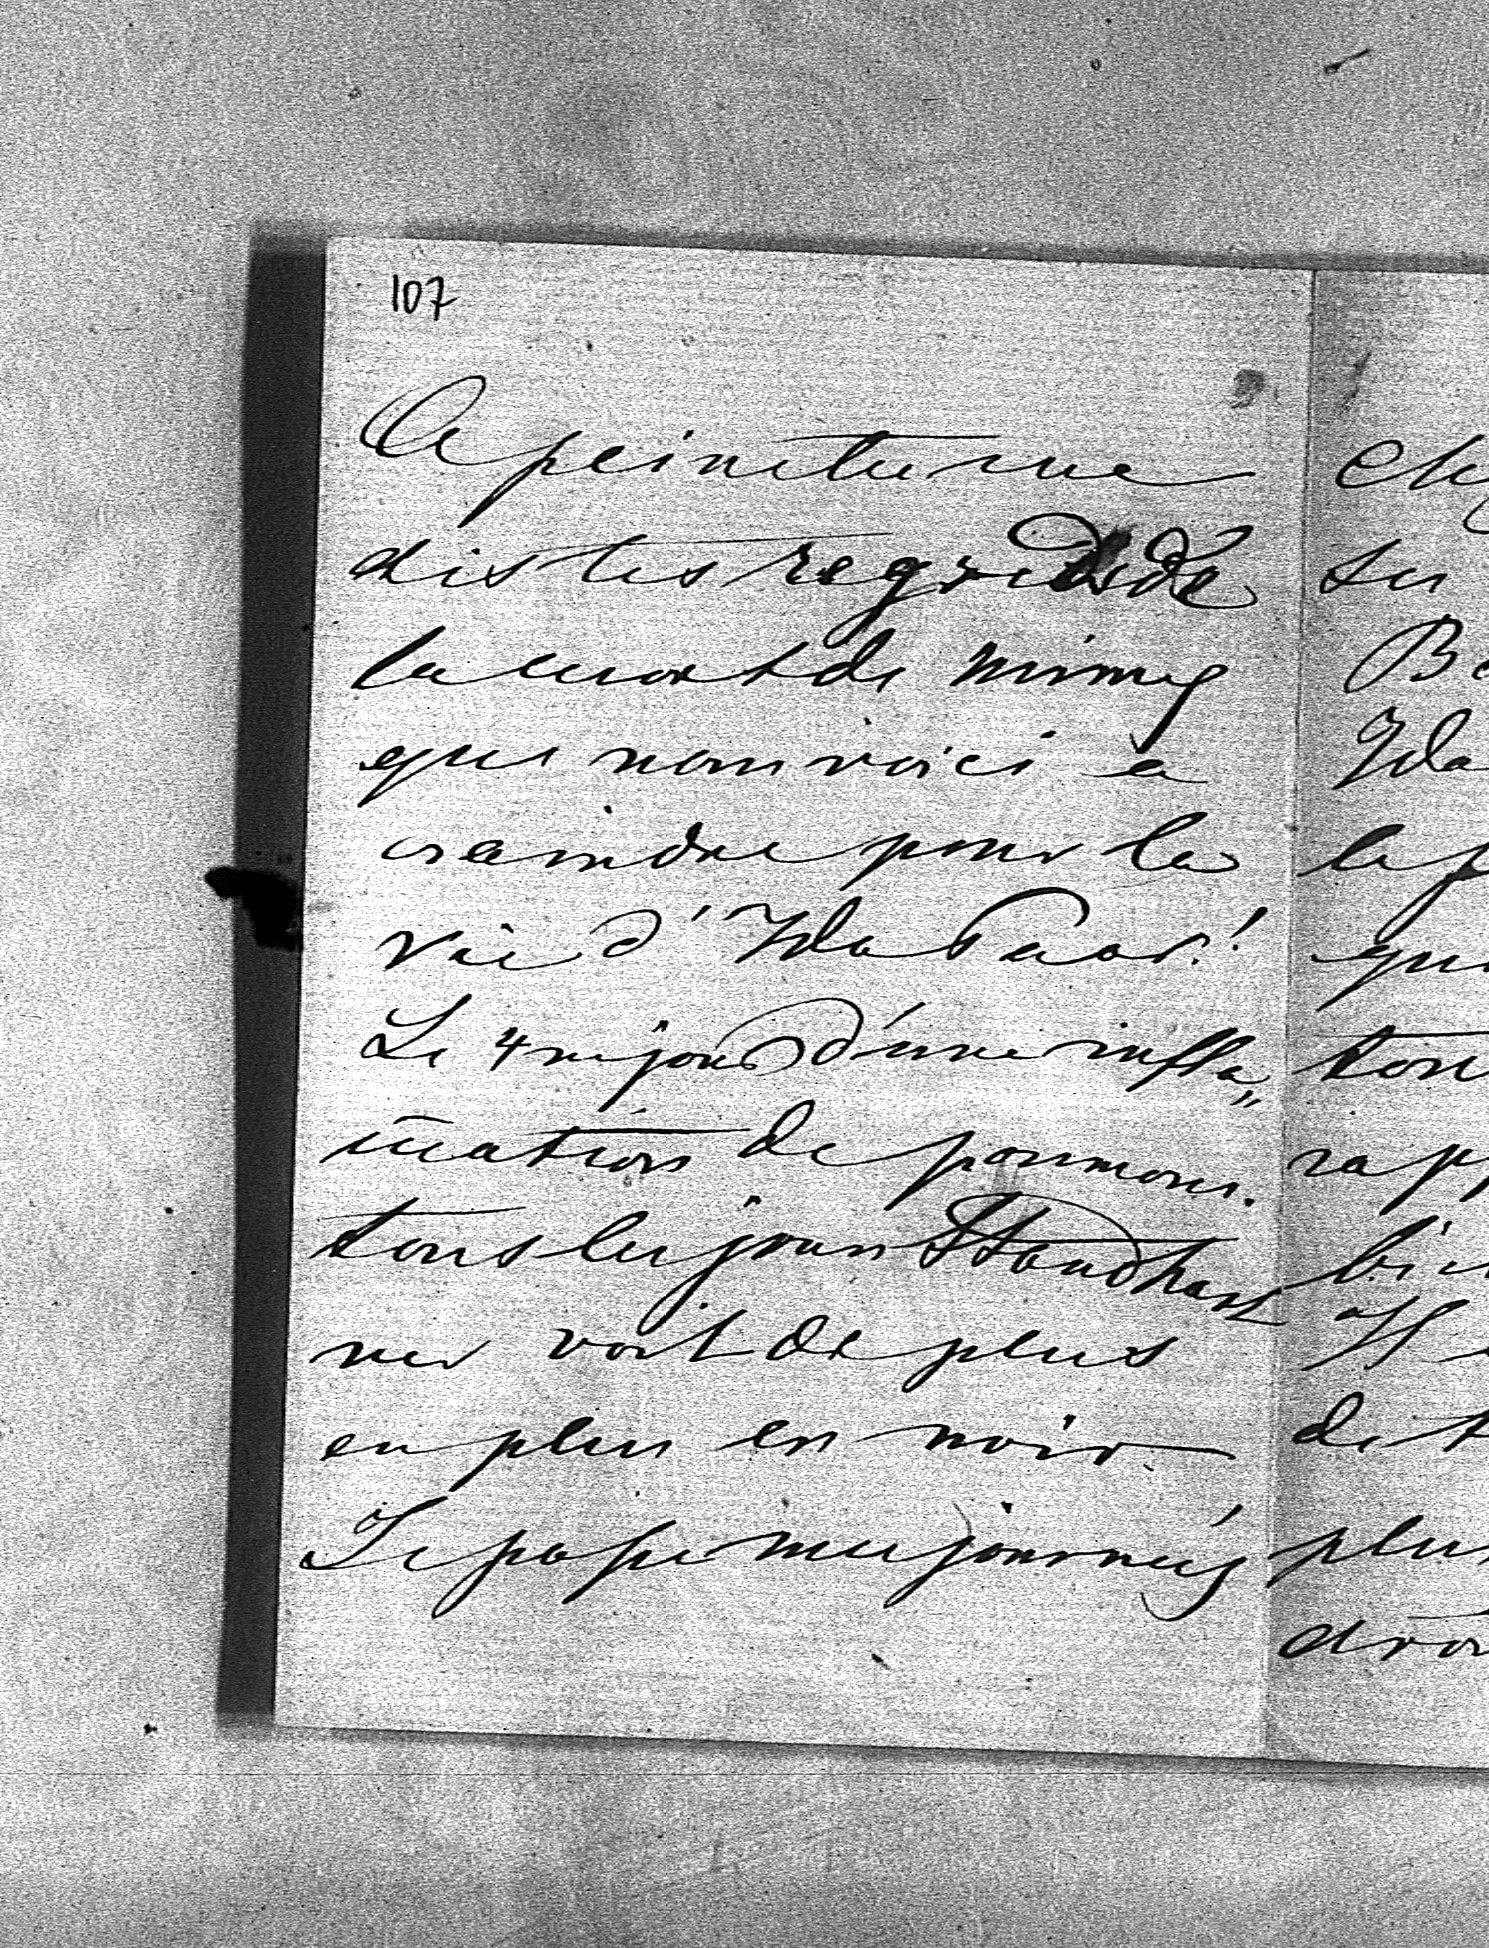 107
A peine tu me
dis tes regrets de
la mort de Mimy
que nous voici à
craindre pour la
vie d'Ida Paar!
Le 4me jour d'une infla„
mation de poumons.
tous les jours Standhart
ner voit de plus
en plus en noir.
Je passe mes journées